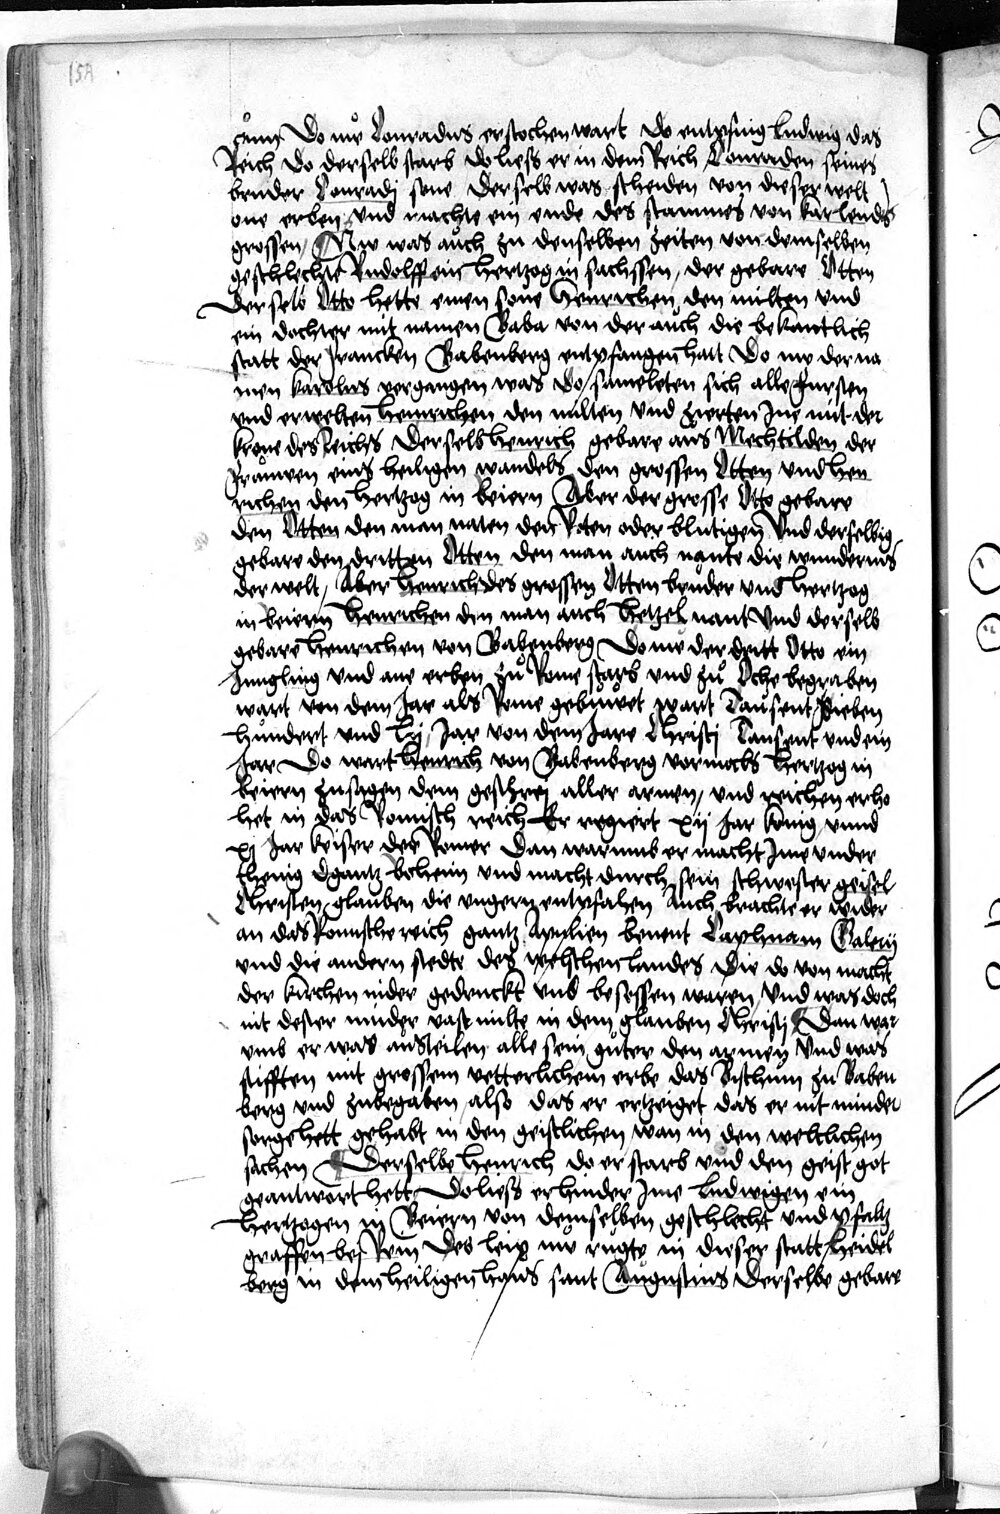 158
Do nw Conradus erstochen wart Do entpfing Ludwig das
Reich Do derselb starb Do liess er in dem Reich Conraden seines
bruder Conradj sone Derselb was scheiden von dieser welt
one erben vnd machte ein ende des stammes von karlen des
grossen / Nw was auch zu denselben zeiten von demselben
geschlechte Rudolff ein hertzog in sachssen / der gebare Otten
Derselb Otto hette einen sone Henrichen den milten vnd
ein dochter mit namen Baba von der auch die bekantlich
statt der francken Babenberg entpfangen hatt Do nw der na
men karolus vergangen was Do sameleten sich alle fursten
vnd erwelten heinrichen den milten vnd zierten Jne mit der
krone des Reichs Derselb henrich gebare aus Mechtilden der
frauwen eins heiligen wandels den grossen Otten vnd hen
richen den hertzog in beiern Aber der grosse Otto gebare
den Otten den man naten den Roten oder blutigen Vnd derselbig
gebare den dritten Otten den man auch nante die wundernis
der welt / Aber henrich des grossen Otten bruder vnd hertzog
in beiern henrichen den man auch hetzel nant Vnd derselb
gebare henrichen von Babenberg Do nw der dritt Otto ein
Jungling vnd ane erben zu Rome starb vnd zu Ache begraben
wart von dem Jar als Rome gebuwet wart Tausent Sieben
hundert vnd lij Jar von dem Jare Christj Tausent vnd ein
Jar Do wart henrich von Babenberg vormals hertzog in
beiern zusagen dem geschrej aller armen / vnd reichen erho
het in das Romisch reich Er regiert xij Jar konig vnnd
xj Jar keiser der Romer Dan warumb er macht Jme vnder
thenig gantz behem vnd macht durch sein schwester geisel
Christen glauben die vngern entpfahen Auch brachte er wider
an das Romische reich gantz Apulien benent Caphuam
vnd die andern stedte des welschen landes Die do von macht
der kirchen nider gedruckt vnd besessen waren / Vnd was doch
nit dester minder vast milte in dem glauben Christj Dan war
vmb er was austeilen alle sein guter den armen Vnd was
stifften mit grossem vetterlichem erbe das Bisthum zu Baben
berg vnd zubegaben also das er ertzeiget das er nit minder
sorge hett gehabt in den geistlichen wan in den weltlichen
sachen Derselbe henrich do er starb vnd den geist got
geantwort hett Do liess er hinder Jme Ludwigen ein
hertzogen in Beiern von demselben geschlecht vnd pfaltz
graffen bej Rein Des leip nw rugte in dieser statt heidel
berg in dem heiligen haus sant Augustins Derselbe gebare